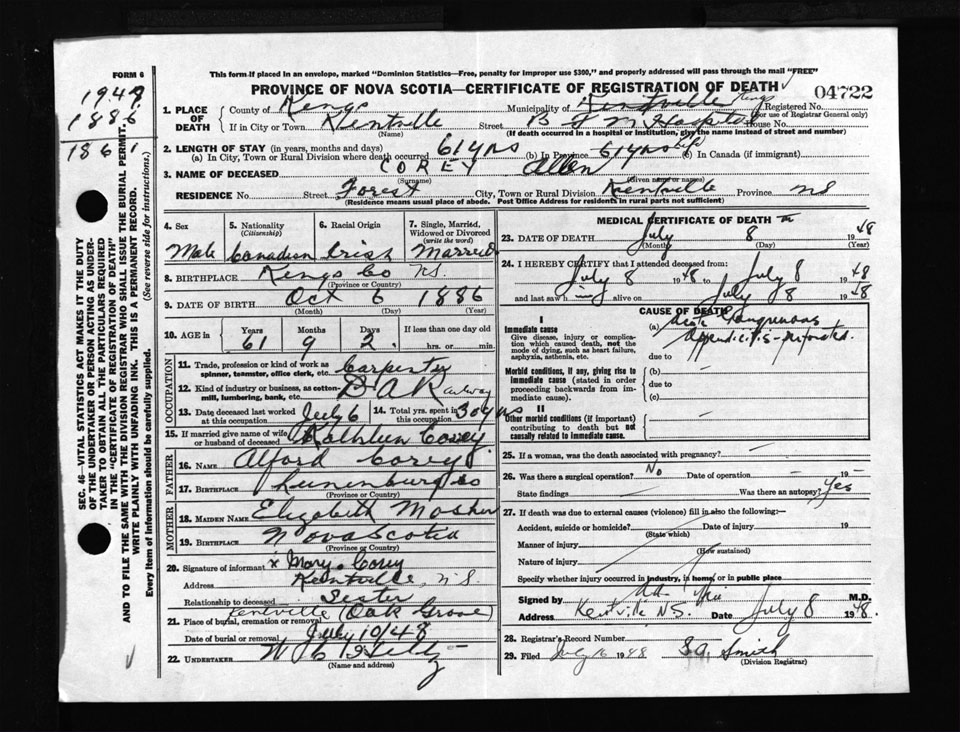 FORM 6
This form if placed in an envelope, marked "Dominion Statistics—Free, penalty for improper use $300," and properly addressed will pass through the mail "FREE"
PROVINCE OF NOVA SCOTIA—CERTIFICATE OF REGISTRATION OF DEATH
04722
194
1886
1861
1. PLACE OF DEATH
County of Kings Municipality of Kentville Kings Registered No.
(For use of Registrar General only)
If in City or Town Kentville Street B F M Hospital House No.
(Name) (If death occurred in a hospital or institution, give the name instead of street and number)
2. LENGTH OF STAY (in years, months and days)
(a) In City, Town or Rural Division where death occurred 61 yrs (b) In Province 61 yrs life (c) In Canada (if immigrant)
3. NAME OF DECEASED COREY Allen
(Surname) (Given name or names)
RESIDENCE No Street Forest City, Town or Rural Division Kentville Province NS
(Residence means usual place of abode. Post Office Address for residents in rural parts not sufficient)
4. Sex
Male
5. Nationality
(Citizenship)
Canadian
6. Racial Origin
Irish
7. Single, Married, Widowed or Divorced
(write the word)
Married
8. BIRTHPLACE Kings Co NS.
(Province or Country)
9. DATE OF BIRTH Oct 6 1886
(Month) (Day) (Year)
10. AGE in
Years Months Days If less than one day old
61 9 2. hrs. or min.
OCCUPATION
11. Trade, profession or kind of work as spinner, teamster, office clerk, etc. Carpenter
12. Kind of industry or business, as cotton-mill, lumbering, bank, etc. D A Railway
13. Date deceased last worked at this occupation July 6 14. Total yrs. spent in this occupation 30 yrs
15. If married give name of wife or husband of deceased Kathleen Corey
FATHER
16. NAME Alford Corey
17. BIRTHPLACE Lunenburg Co
(Province or Country)
MOTHER
18. MAIDEN NAME Elizabeth Mosher
19. BIRTHPLACE Nova Scotia
(Province or Country)
20. Signature of informant x Mary Corey
Address Kentville, N.S.
Relationship to deceased Sister
21. Place of burial, cremation or removal Kentville (Oak Grove)
Date of burial or removal July 10/48
22. UNDERTAKER W C
(Name and address)
MEDICAL CERTIFICATE OF DEATH
23. DATE OF DEATH July 8 th 1948
(Month) (Day) (Year)
24. I HEREBY CERTIFY that I attended deceased from:
July 8 1948 to July 8 1948
and last saw h im alive on July 8 1948
CAUSE OF DEATH
I
Immediate cause
Give disease, injury or complication which caused death, not the mode of dying, such as heart failure, asphyxia, asthenia, etc.
(a) Acute Gangrenous
Appendicitis - perforated.
due to
Morbid conditions, if any, giving rise to immediate cause (stated in order proceeding backwards from immediate cause).
(b)
due to
(c)
II
Other morbid conditions (if important) contributing to death but not causally related to immediate cause.
25. If a woman, was the death associated with pregnancy?
26. Was there a surgical operation? No Date of operation 19
State findings Was there an autopsy? Yes
27. If death was due to external causes (violence) fill in also the following:—
Accident, suicide or homicide? Date of injury 19
(State which)
Manner of injury
(How sustained)
Nature of injury
Specify whether injury occurred in industry, in home, or in public place
Signed by M.D.
Address Kentville N.S. July 8 1948.
28. Registrar's Record Number
29. Filed July 16 1948 Smith
(Division Registrar)
SEC. 46—VITAL STATISTICS ACT MAKES IT THE DUTY OF THE UNDERTAKER OR PERSON ACTING AS UNDERTAKER TO OBTAIN ALL THE PARTICULARS REQUIRED IN THE "CERTIFICATE OF REGISTRATION OF DEATH" AND TO FILE THE SAME WITH THE DIVISION REGISTRAR WHO SHALL ISSUE THE BURIAL PERMIT.
WRITE PLAINLY WITH UNFADING INK. THIS IS A PERMANENT RECORD.
Every item of information should be carefully supplied. (See reverse side for instructions.)